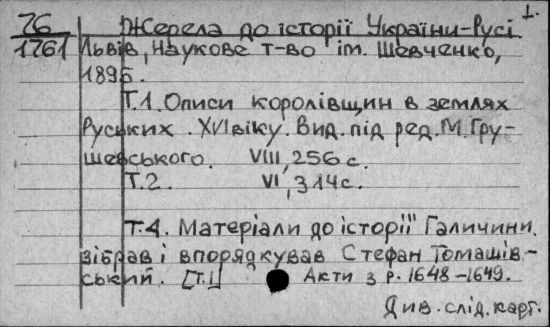 1.
76 Жерела до історії України-Русі
1761 Львів, Наукове т-во ім. Шевченко,
1895.
Т.1. Описи королівщин в землях
Руських. XVI віку. Вид. під ред. М. Гру-
шевського. VIII, 256 с.
Т.2. VI, 314 с.
Т.4. Матеріали до історії Галичини.
зібрав і впорядкував Стефан Томашів-
ський. [Т.1] Акти з р. 1648-1649.
Див. слід. карт.